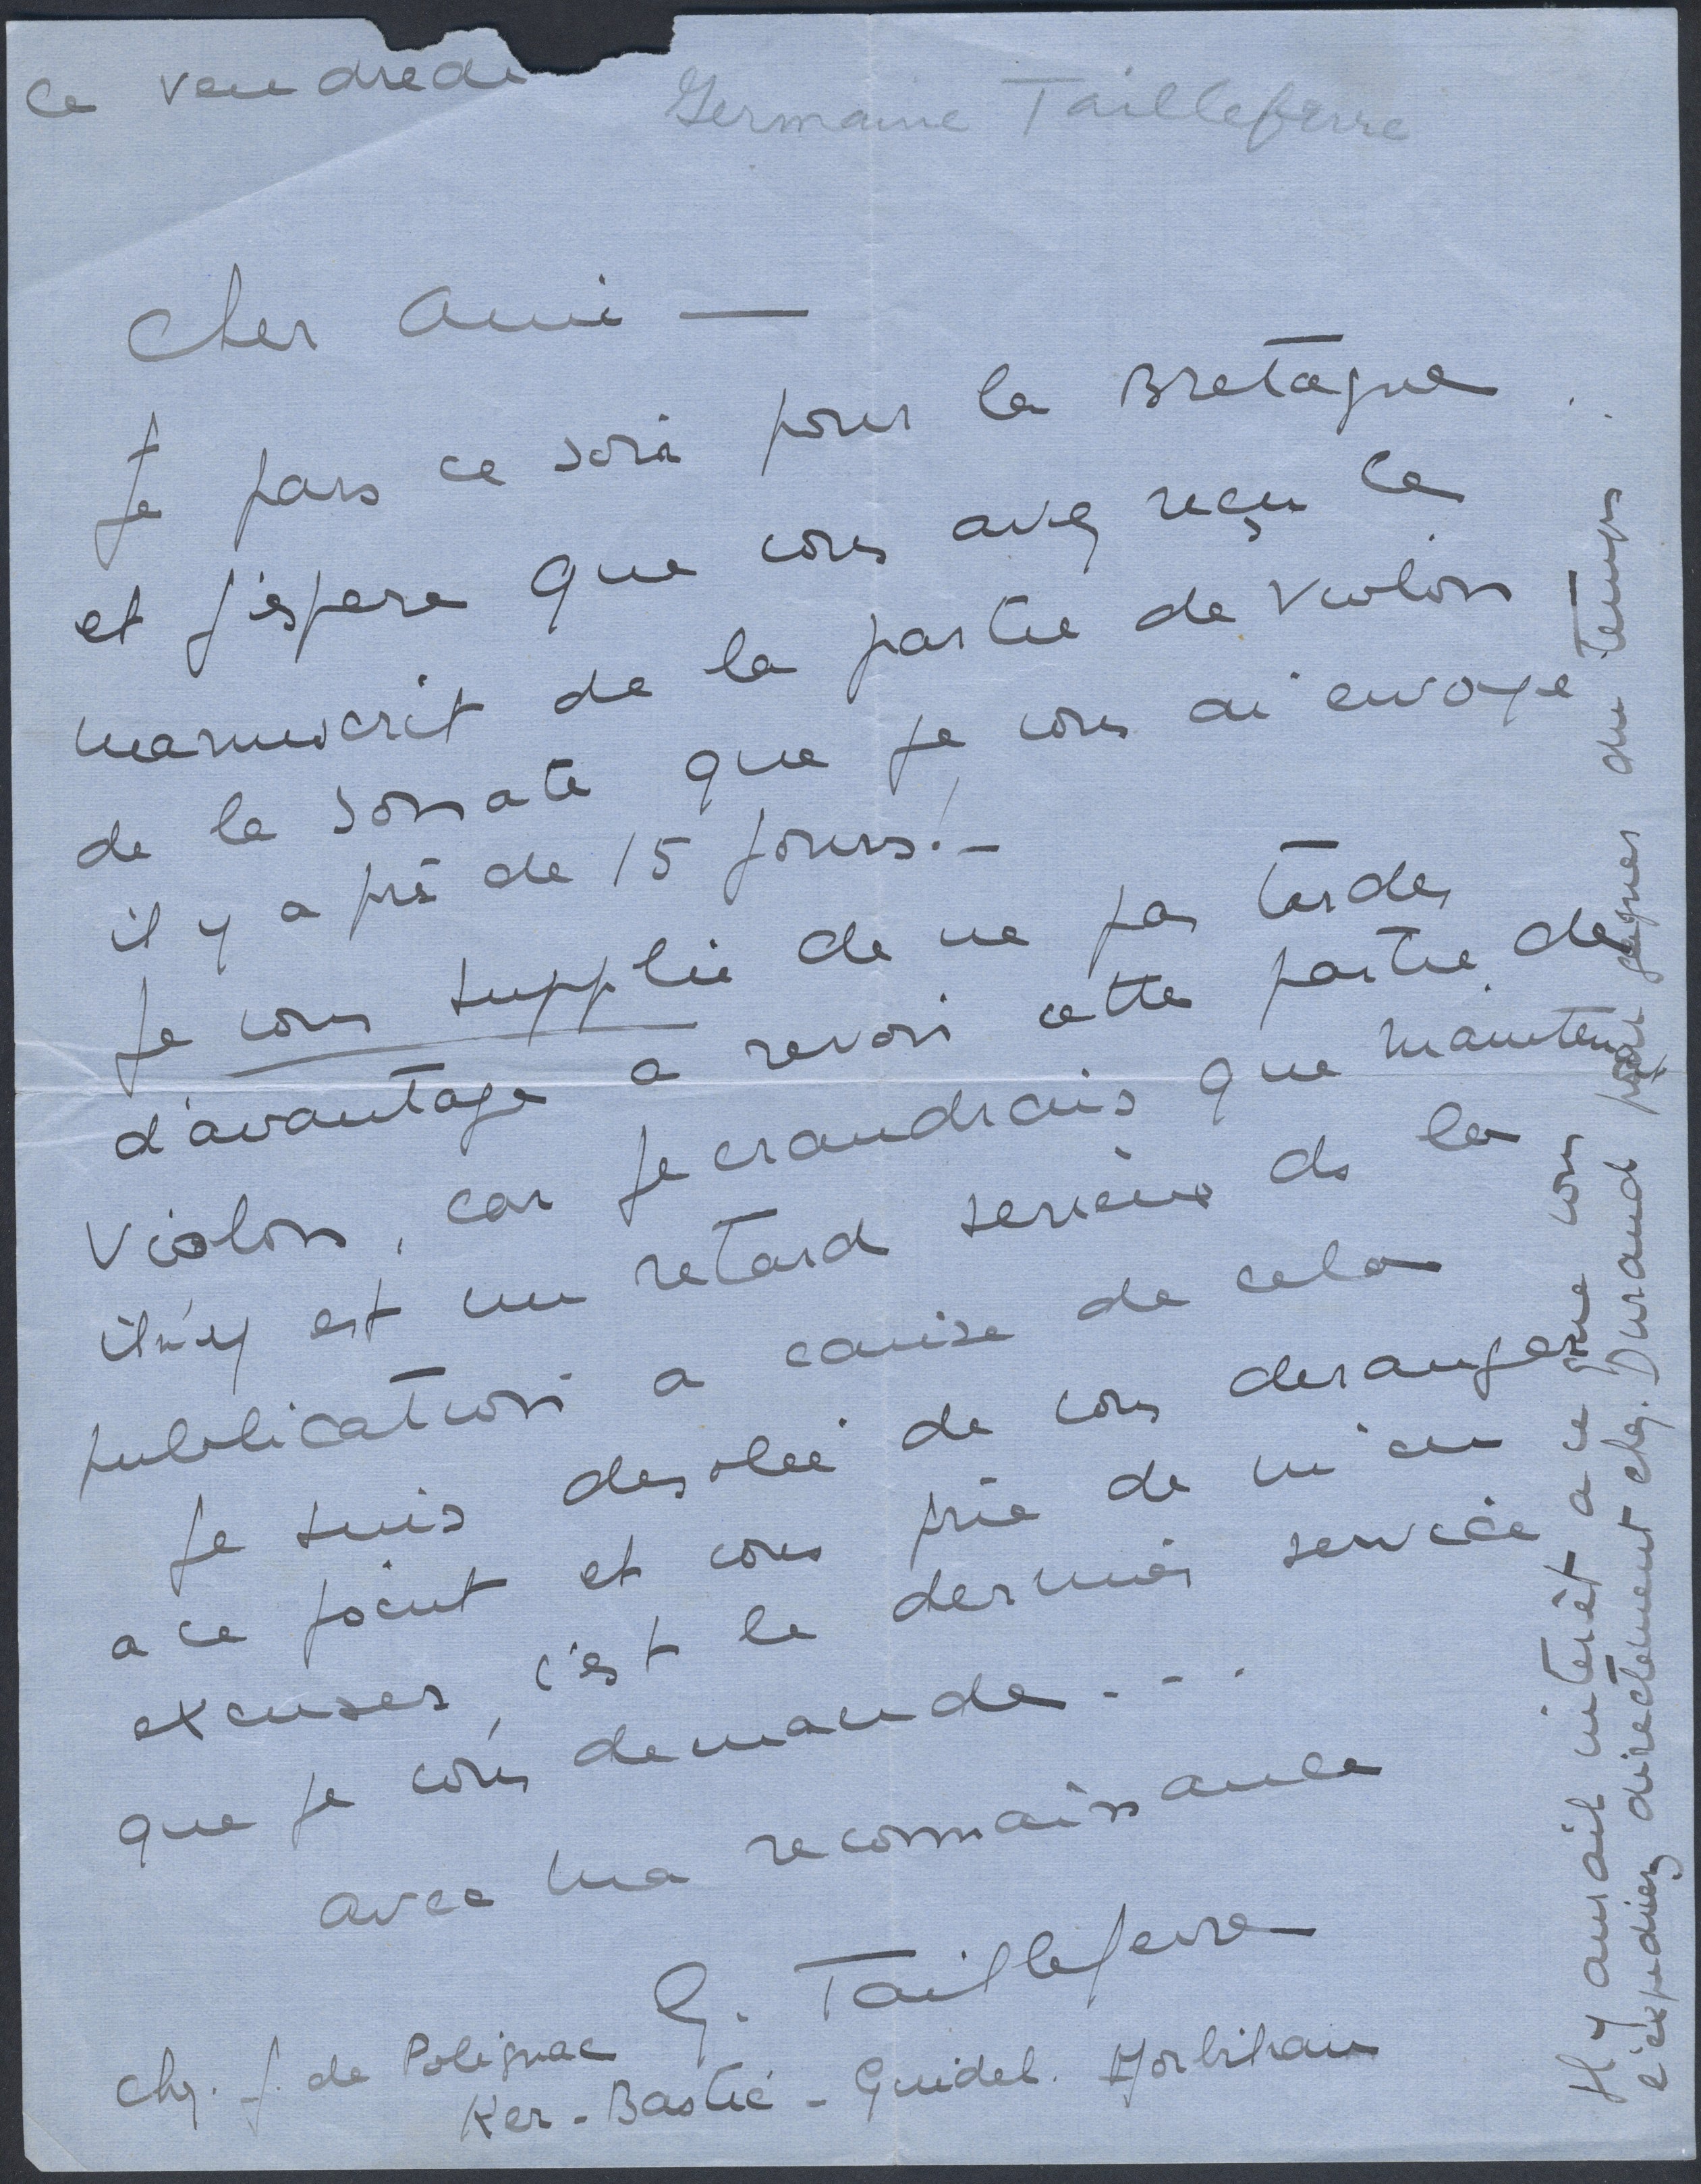 Ce vendredi
Germaine Taillefferre
Cher Ami —
Je pars ce soir pour la Bretagne
et j'éspere que vous avez reçu le
manuscrit de la partie de Violon
de la Sonate que je vous ai envoyé
il y a prè de 15 jours! —
Je vous supplie de ne pas tarder
d'avantage a revoir cette partie de
Violon, car je craindrais que maintenant
il n'y est un retard serieux ds la
publication a cause de cela
Je suis desolée de vous deranger
a ce point et vous prie de m'en
excuser, c'est le dernier service
que je vous demande...
avec ma reconnaissance
G. Taillefferre
chez. J. de Polignac
Ker-Bastic - Guidel. Morbihan
Il y aurait interèt a ce que vous
l'expediez directement chez. Durand pour gagner du temps